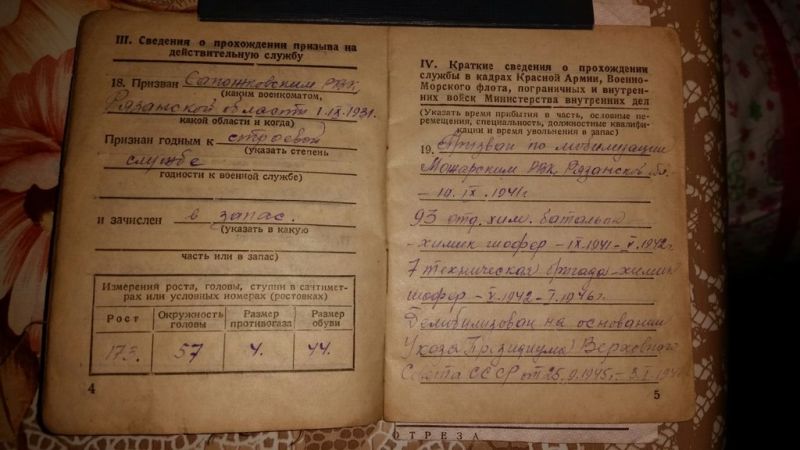 III. Сведения о прохождении призыва на
действительную службу
18. Призван Сапожковским РВК,
(каким военкоматом,
Рязанской области 1.IX.1931.
какой области и когда)
Признан годным к строевой
(указать степень
службе
годности к военной службе)
и зачислен в запас.
(указать в какую
часть или в запас)
Измерений роста, головы, ступни в сантимет-
рах или условных номерах (ростовках)
Рост Окружность головы Размер противогаза Размер обуви
173. 57 4. 44.
4
IV. Краткие сведения о прохождении
службы в кадрах Красной Армии, Военно-
Морского флота, пограничных и внутрен-
них войск Министерства внутренних дел
(Указать время прибытия в часть, основные пе-
ремещения, специальность, должностные квалифи-
кации и время увольнения в запас)
19. Призван по мобилизации
Можарским РВК, Рязанской обл.
- 10.IX.1941г.
93 отд. хим. батальон
- химик шофер - IX.1941 - V.1942г.
7 техническая бригада - химик
шофер - V.1942 - I.1946г.
Демобилизован на основании
Указа Президиума Верховного
Совета СССР от 25.9.1945г. - 3.I.
5
ОТРЕЗА